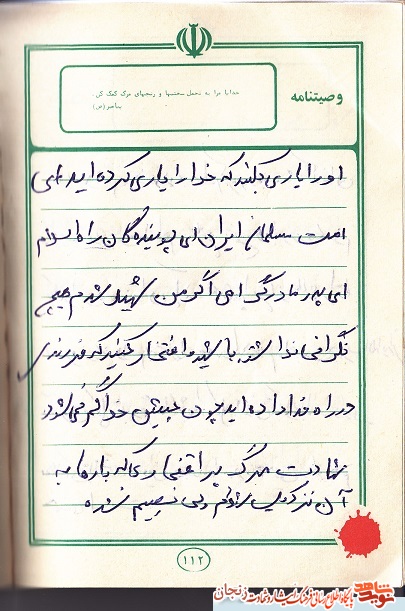 وصیتنامه
خدایا مرا به تحمل سختیها و رنجهای مرگ کمک کن.
پیامبر(ص)
او را یاری بکنید که خدا را یاری کرده اید ای
امت مسلمان ایران ای پوینده گان راه اسلام
ای پدر مادر گرامی اگر من شهید شدم هیچ
نگرانی نداشته باشید و افتخار کنید که فرزندی
در راه خدا داده اید چون چنین خدا گم نمی شود
شهادت مرگ پر افتخاری که بارها به
آن نزدیک شدم ولی نصیبم نشده
۱۱۲
نوید شاهد
پایگاه اطلاع رسانی فرهنگ ایثار و شهادت زنجان